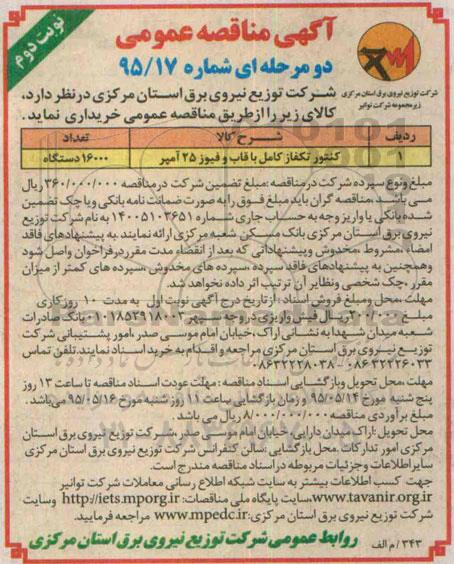 نوبت دوم
آگهی مناقصه عمومی
دو مرحله ای شماره ۹۵/۱۷
شرکت توزیع نیروی برق استان مرکزی
زیرمجموعه شرکت توانیر
شرکت توزیع نیروی برق استان مرکزی درنظر دارد،
کالای زیر را از طریق مناقصه عمومی خریداری نماید.
ردیف شرح کالا تعداد
۱ کنتور تکفاز کامل با قاب و فیوز ۲۵ آمپر ۱۶۰۰۰ دستگاه
مبلغ ونوع سپرده شرکت در مناقصه :مبلغ تضمین شرکت در مناقصه ۳۶۰/۰۰۰/۰۰۰ ریال
می باشد ،مناقصه گران باید مبلغ فوق را به صورت ضمانت نامه بانکی ویا چک تضمین
شده بانکی یا واریز وجه به حساب جاری شماره ۱۴۰۰۵۱۰۳۶۵۱ به نام شرکت توزیع
نیروی برق استان مرکزی بانک مسکن شعبه مرکزی ارائه نمایند .به پیشنهادهای فاقد
امضاء ،مشروط ،مخدوش وپیشنهاداتی که بعد از انقضاء مدت مقرر درفراخوان واصل شود
وهمچنین به پیشنهادهای فاقد سپرده ،سپرده های مخدوش ،سپرده های کمتر از میزان
مقرر ،چک شخصی ونظایر آن ترتیب اثر داده نخواهد شد.
مهلت ،محل ومبلغ فروش اسناد : از تاریخ درج آگهی نوبت اول به مدت ۱۰ روز کاری
مبلغ ۲۰۰/۰۰۰ ریال فیش واریزی دروجه سپهر ۰۱۰۱۸۵۲۹۱۸۰۰۳ بانک صادرات
شعبه میدان شهدا به نشانی اراک ،خیابان امام موسی صدر ،امور پشتیبانی شرکت
توزیع نیروی برق استان مرکزی مراجعه و اقدام به خرید اسناد نمایند.تلفن تماس
۰۸۶۳۲۲۲۸۰۳۸-۰۸۶ ۳۲۲۴۶۰۳۳
مهلت ،محل تحویل وبازگشایی اسناد مناقصه : مهلت عودت اسناد مناقصه تا ساعت ۱۳ روز
پنج شنبه مورخ ۹۵/۰۵/۱۴ و زمان بازگشایی ساعت ۱۱ روز شنبه مورخ ۹۵/۰۵/۱۶ می باشد .
مبلغ برآوردی مناقصه ۸/۰۰۰/۰۰۰/۰۰۰ ریال می باشد .
محل تحویل :اراک ،میدان دارایی ،خیابان امام موسی صدر ،شرکت توزیع نیروی برق استان
مرکزی امور تدارکات .محل بازگشایی :سالن کنفرانس شرکت توزیع نیروی برق استان مرکزی
سایر اطلاعات وجزئیات مربوطه در اسناد مناقصه مندرج است.
جهت کسب اطلاعات بیشتر به سایت شبکه اطلاع رسانی معاملات شرکت توانیر
www.tavanir.org.ir،سایت پایگاه ملی مناقصات: http://iets.mporg.ir وسایت
شرکت توزیع نیروی برق استان مرکزی: www.mpedc.ir مراجعه فرمایید.
۳۴۳/ م الف
روابط عمومی شرکت توزیع نیروی برق استان مرکزی